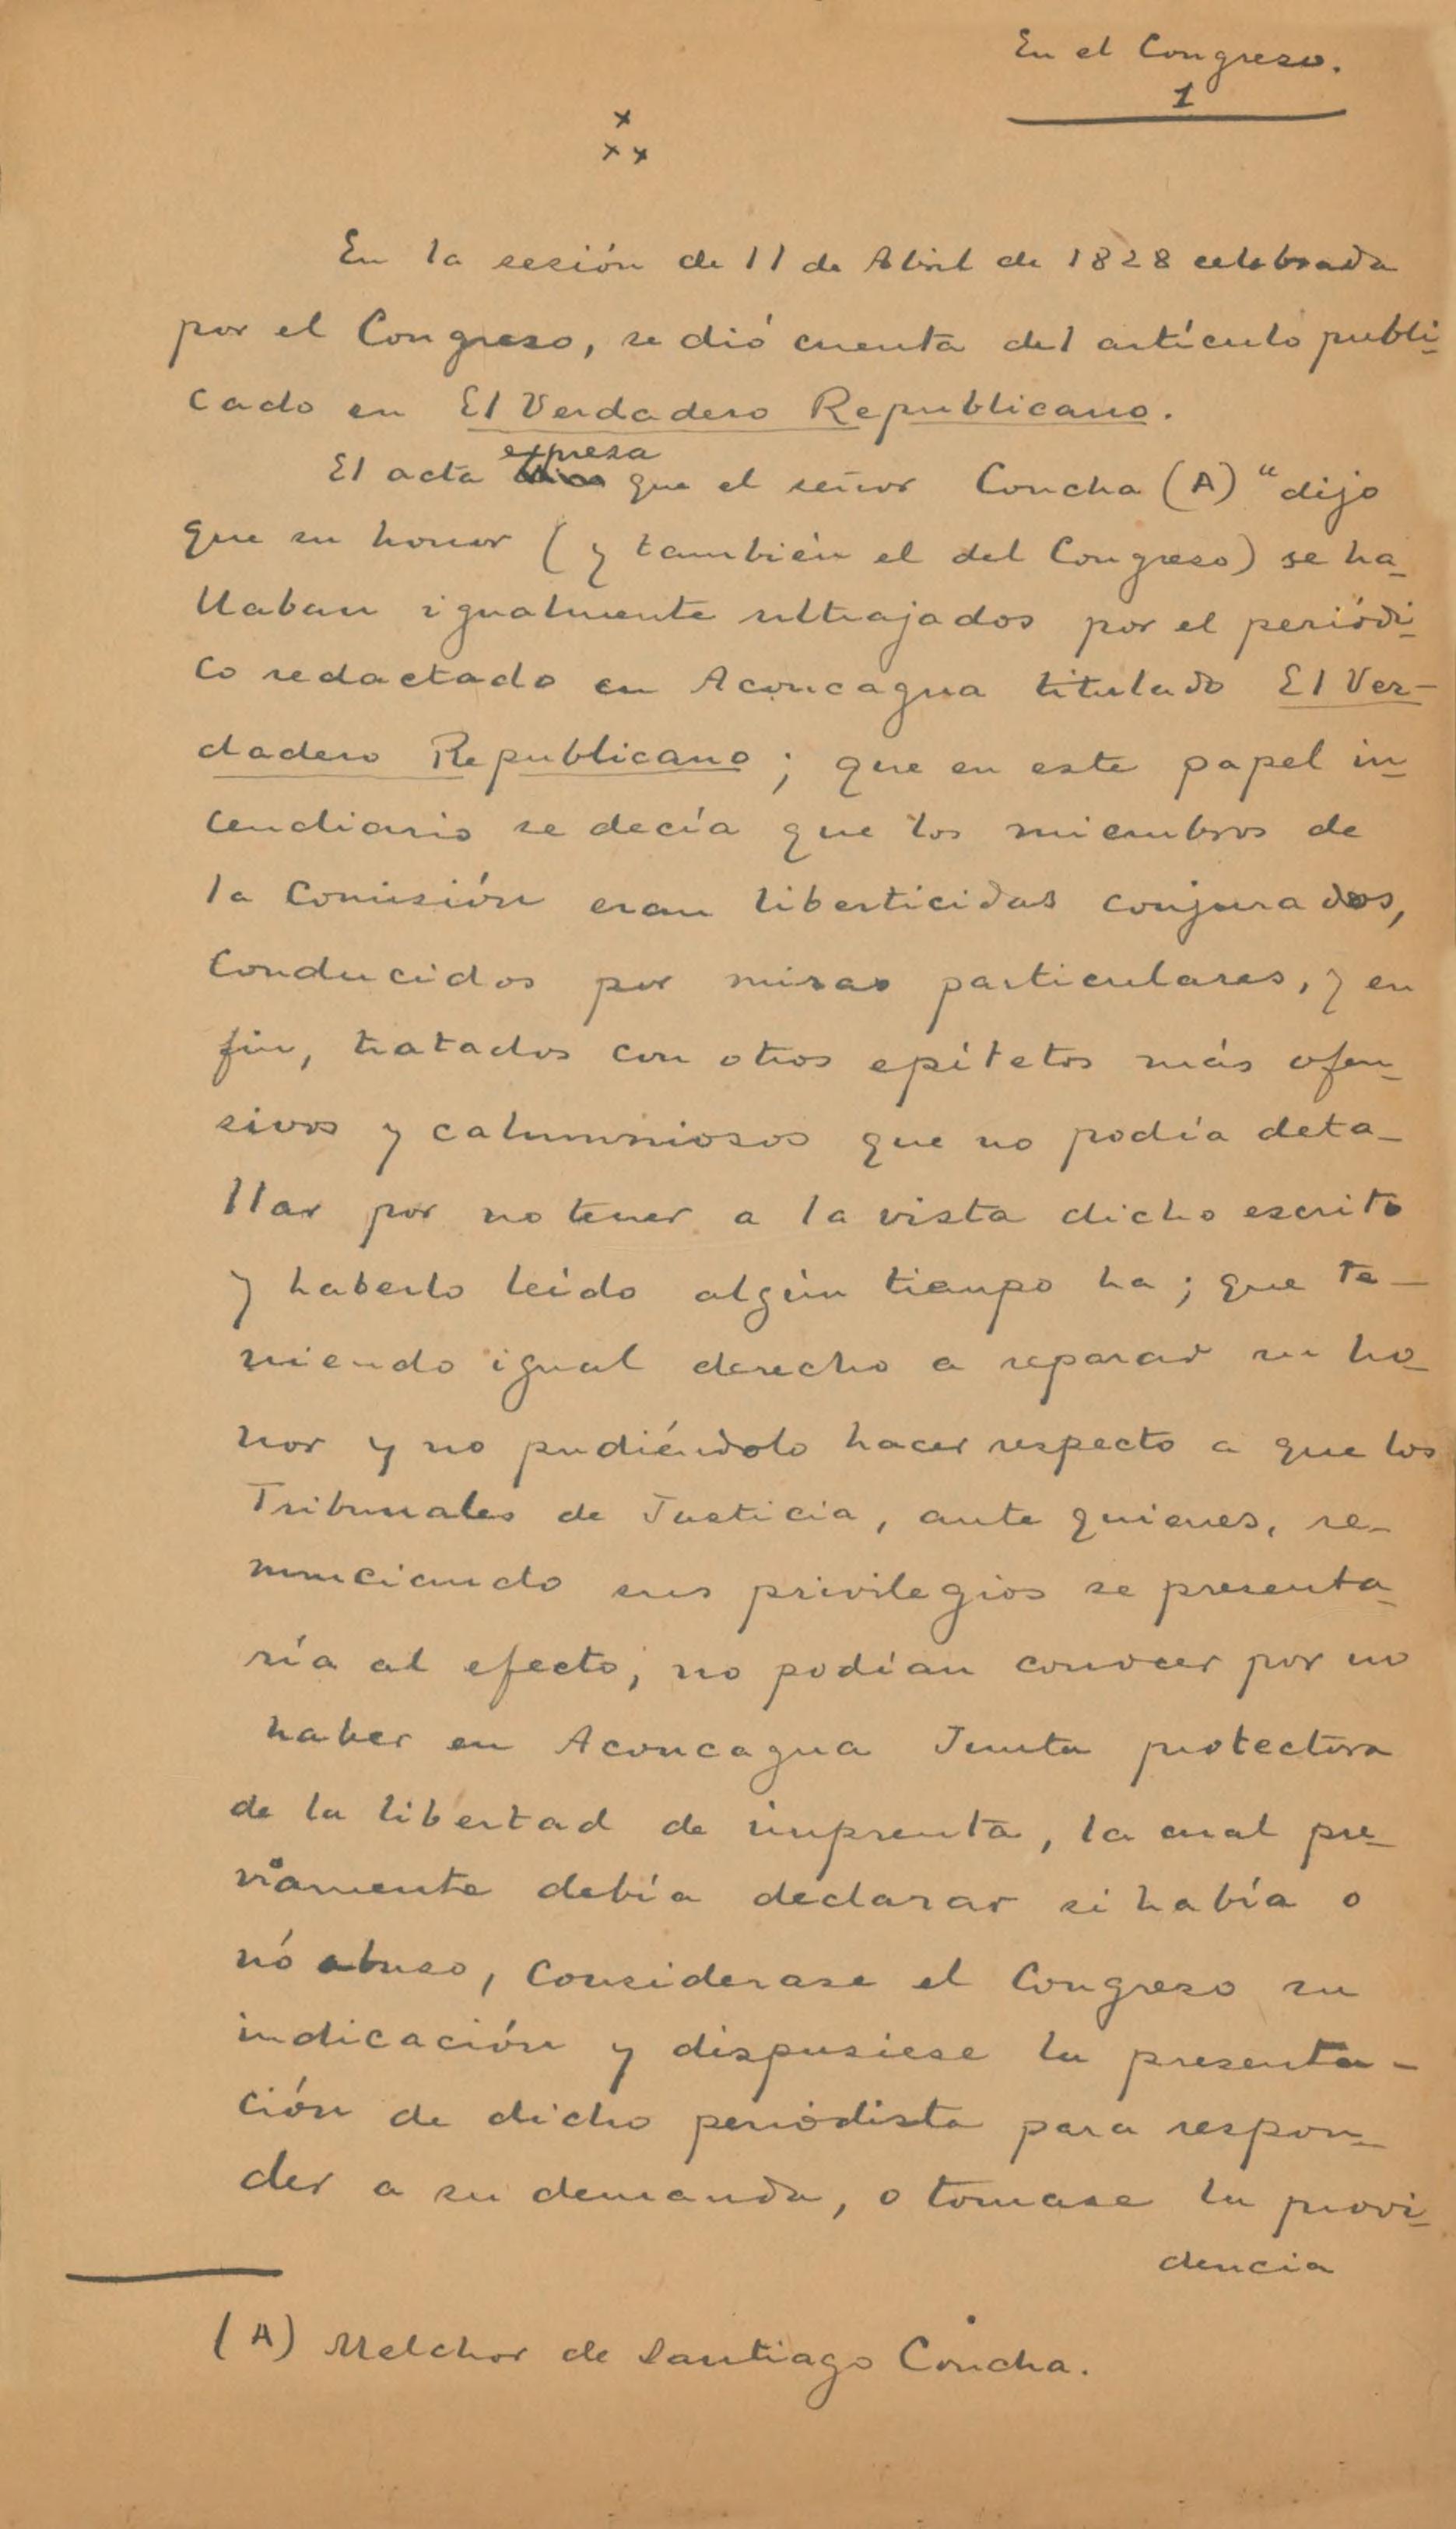 En el Congreso.
1
x
x x
En la sesión de 11 de Abril de 1828 celebrada
por el Congreso, se dió cuenta del artículo publi-
cado en El Verdadero Republicano.
expresa
El acta que el señor Concha (A) "dijo
que su honor (y también el del Congreso) se ha-
llaban igualmente ultrajados por el periódi-
co redactado en Aconcagua titulado El Ver-
dadero Republicano; que en este papel in-
cendiario se decía que los miembros de
la Comisión eran liberticidas conjurados,
conducidos por miras particulares, y en
fin, tratados con otros epítetos más ofen-
sivos y calumniosos que no podía deta-
llar por no tener a la vista dicho escrito
y haberlo leído algún tiempo ha; que te-
niendo igual derecho a reparar su ho-
nor y no pudiéndolo hacer respecto a que los
Tribunales de Justicia, ante quienes, re-
nunciando sus privilegios se presenta-
ría al efecto, no podían conocer por no
haber en Aconcagua Junta protectora
de la libertad de imprenta, la cual pre-
viamente debía declarar si había o
nó abuso, considerase el Congreso su
indicación y dispusiese la presenta-
ción de dicho periodista para respon-
der a su demanda, o tomase la provi-
dencia
(A) Melchor de Santiago Concha.